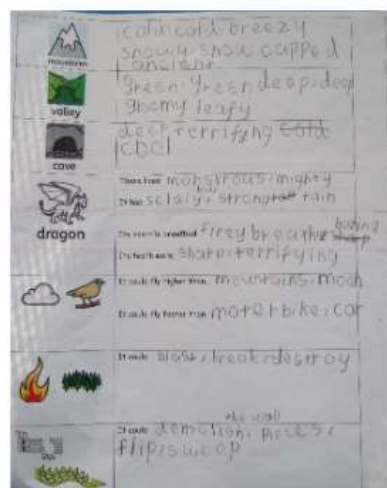 mountains
cold cold breezy
snowy snow capped
ancient
valley
green green deep deep
gloomy leafy
cave
deep terrifing cold
There lived monstrous mighty
It has sclaiy strong tain
dragon
firey breathe
Its teeth were sharp terrifying
It could fly higher than mountains moon
It could fly faster than moterbike car
It could blast break destroy
the wall
It could demolish
flip swoop